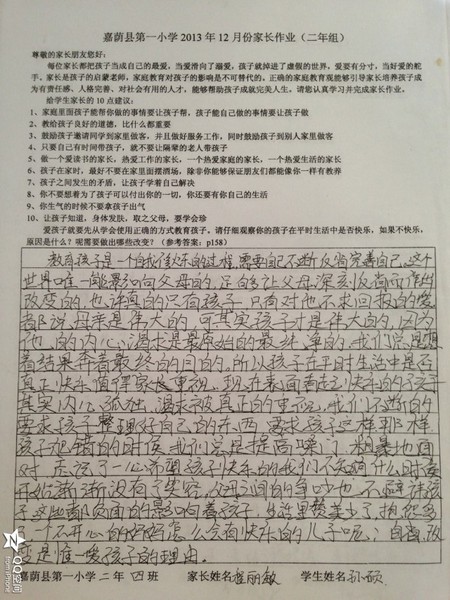 嘉荫县第一小学2013年12月份家长作业（二年组）
尊敬的家长朋友您好：
每位家长都把孩子当成自己的最爱，当爱滑向了溺爱，孩子就掉进了虚假的世界，爱要有分寸，当好爱的舵
手，家长是孩子的启蒙老师，家庭教育对孩子的影响是不可替代的，正确的家庭教育观能够引导家长培养孩子成
为有责任感、人格完善、对社会有用的人才，能够帮助孩子成就完美人生，请您认真学习并完成家长作业。
给学生家长的10点建议：
1、家庭里面孩子能帮你做的事情要让孩子帮，孩子能自己做的事情要让孩子做
2、教给孩子良好的道德，比什么都重要
3、鼓励孩子邀请同学到家里做客，并且做好服务工作，同时鼓励孩子到别人家里做客
4、只要自己有时间带孩子，就不要让隔辈的老人带孩子
5、做一个爱读书的家长，热爱工作的家长，一个热爱家庭的家长，一个热爱生活的家长
6、孩子在家时，最好不要在家里面摆酒场，除非你能够保证朋友们都能像你一样有教养
7、孩子之间发生的矛盾，让孩子学着自己解决
8、你不要想着为了孩子可以付出你的一切，你还要有你自己的生活
9、你生气的时候不要拿孩子出气
10、让孩子知道，身体发肤，取之父母，要学会珍
爱孩子就要先从学会使用正确的方式教育孩子，请仔细观察你的孩子在平时生活中是否快乐，如果不快乐，
原因是什么？呢需要做出哪些改变？（参考答案：p158）
教育孩子是一个自我修炼的过程，需要自己不断反省完善自己。这个
世界唯一能影响向父母的，正的令让父母深刻反省而作
改变的，也许真的只有孩子，只有对他不求回报的爱
都说，母亲是伟大的，可其实孩子才是伟大的，因为
他的内心渴求是最原始的最纯真的，我们总是想
着结果奔着最终的目的。所以孩子在平时生活中是否
真正快乐值得家长重视，现在表面看起来快乐的孩子
其实内心孤独，渴求被真正的重视，我们不断的
要求孩子整理好自己的东西，要求孩子这样那样
孩子犯错的时候，我们总是提高嗓门，粗暴地面
对
一心希望孩子快乐的我们不知从什么时候
开始渐渐没有了笑容，父母之间的争吵也不避讳孩
子这些都负面的影响着孩子，
一个不开心的妈妈怎么会有快乐的儿子呢？自省，改
变是唯一爱孩子的理由。
嘉荫县第一小学二年 四 班 家长姓名 程丽敏 学生姓名 孙硕
QQ空间
from iPhone